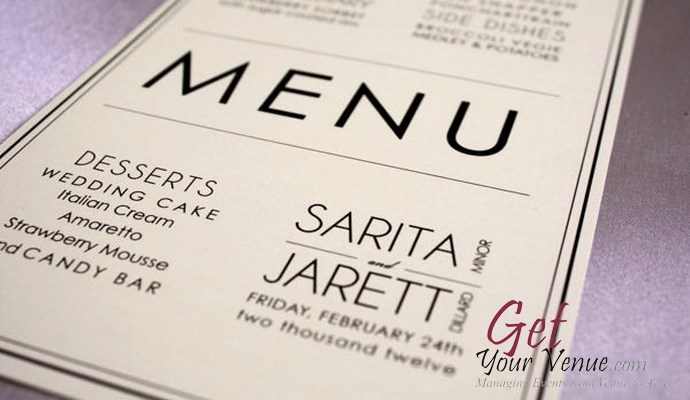 SORBET
SIDE DISHES
BROCCOLI VEGIE
MEDLEY & POTATOES
MENU
DESSERTS
WEDDING CAKE
Italian Cream
Amaretto
Strawberry Mousse
and CANDY BAR
SARITA MINOR
and
JARETT DILLARD
FRIDAY, FEBRUARY 24th
two thousand twelve
Get
Your Venue.com
Managing Events from Venue to